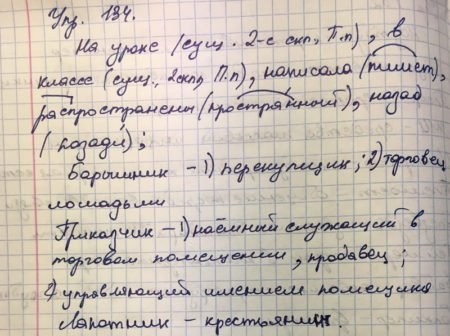 Упр. 134.
На уроке (сущ. 2-е скл., П.п), в
классе (сущ., 2скл, П.п), написала (пишет),
распространены (пространный), назад
(позади);
Барышник - 1) перекупщик; 2) торговец
лошадьми
Приказчик - 1) наёмный служащий в
торговом помещении, продавец;
2) управляющий имением помещика
Лапотник - крестьянин.